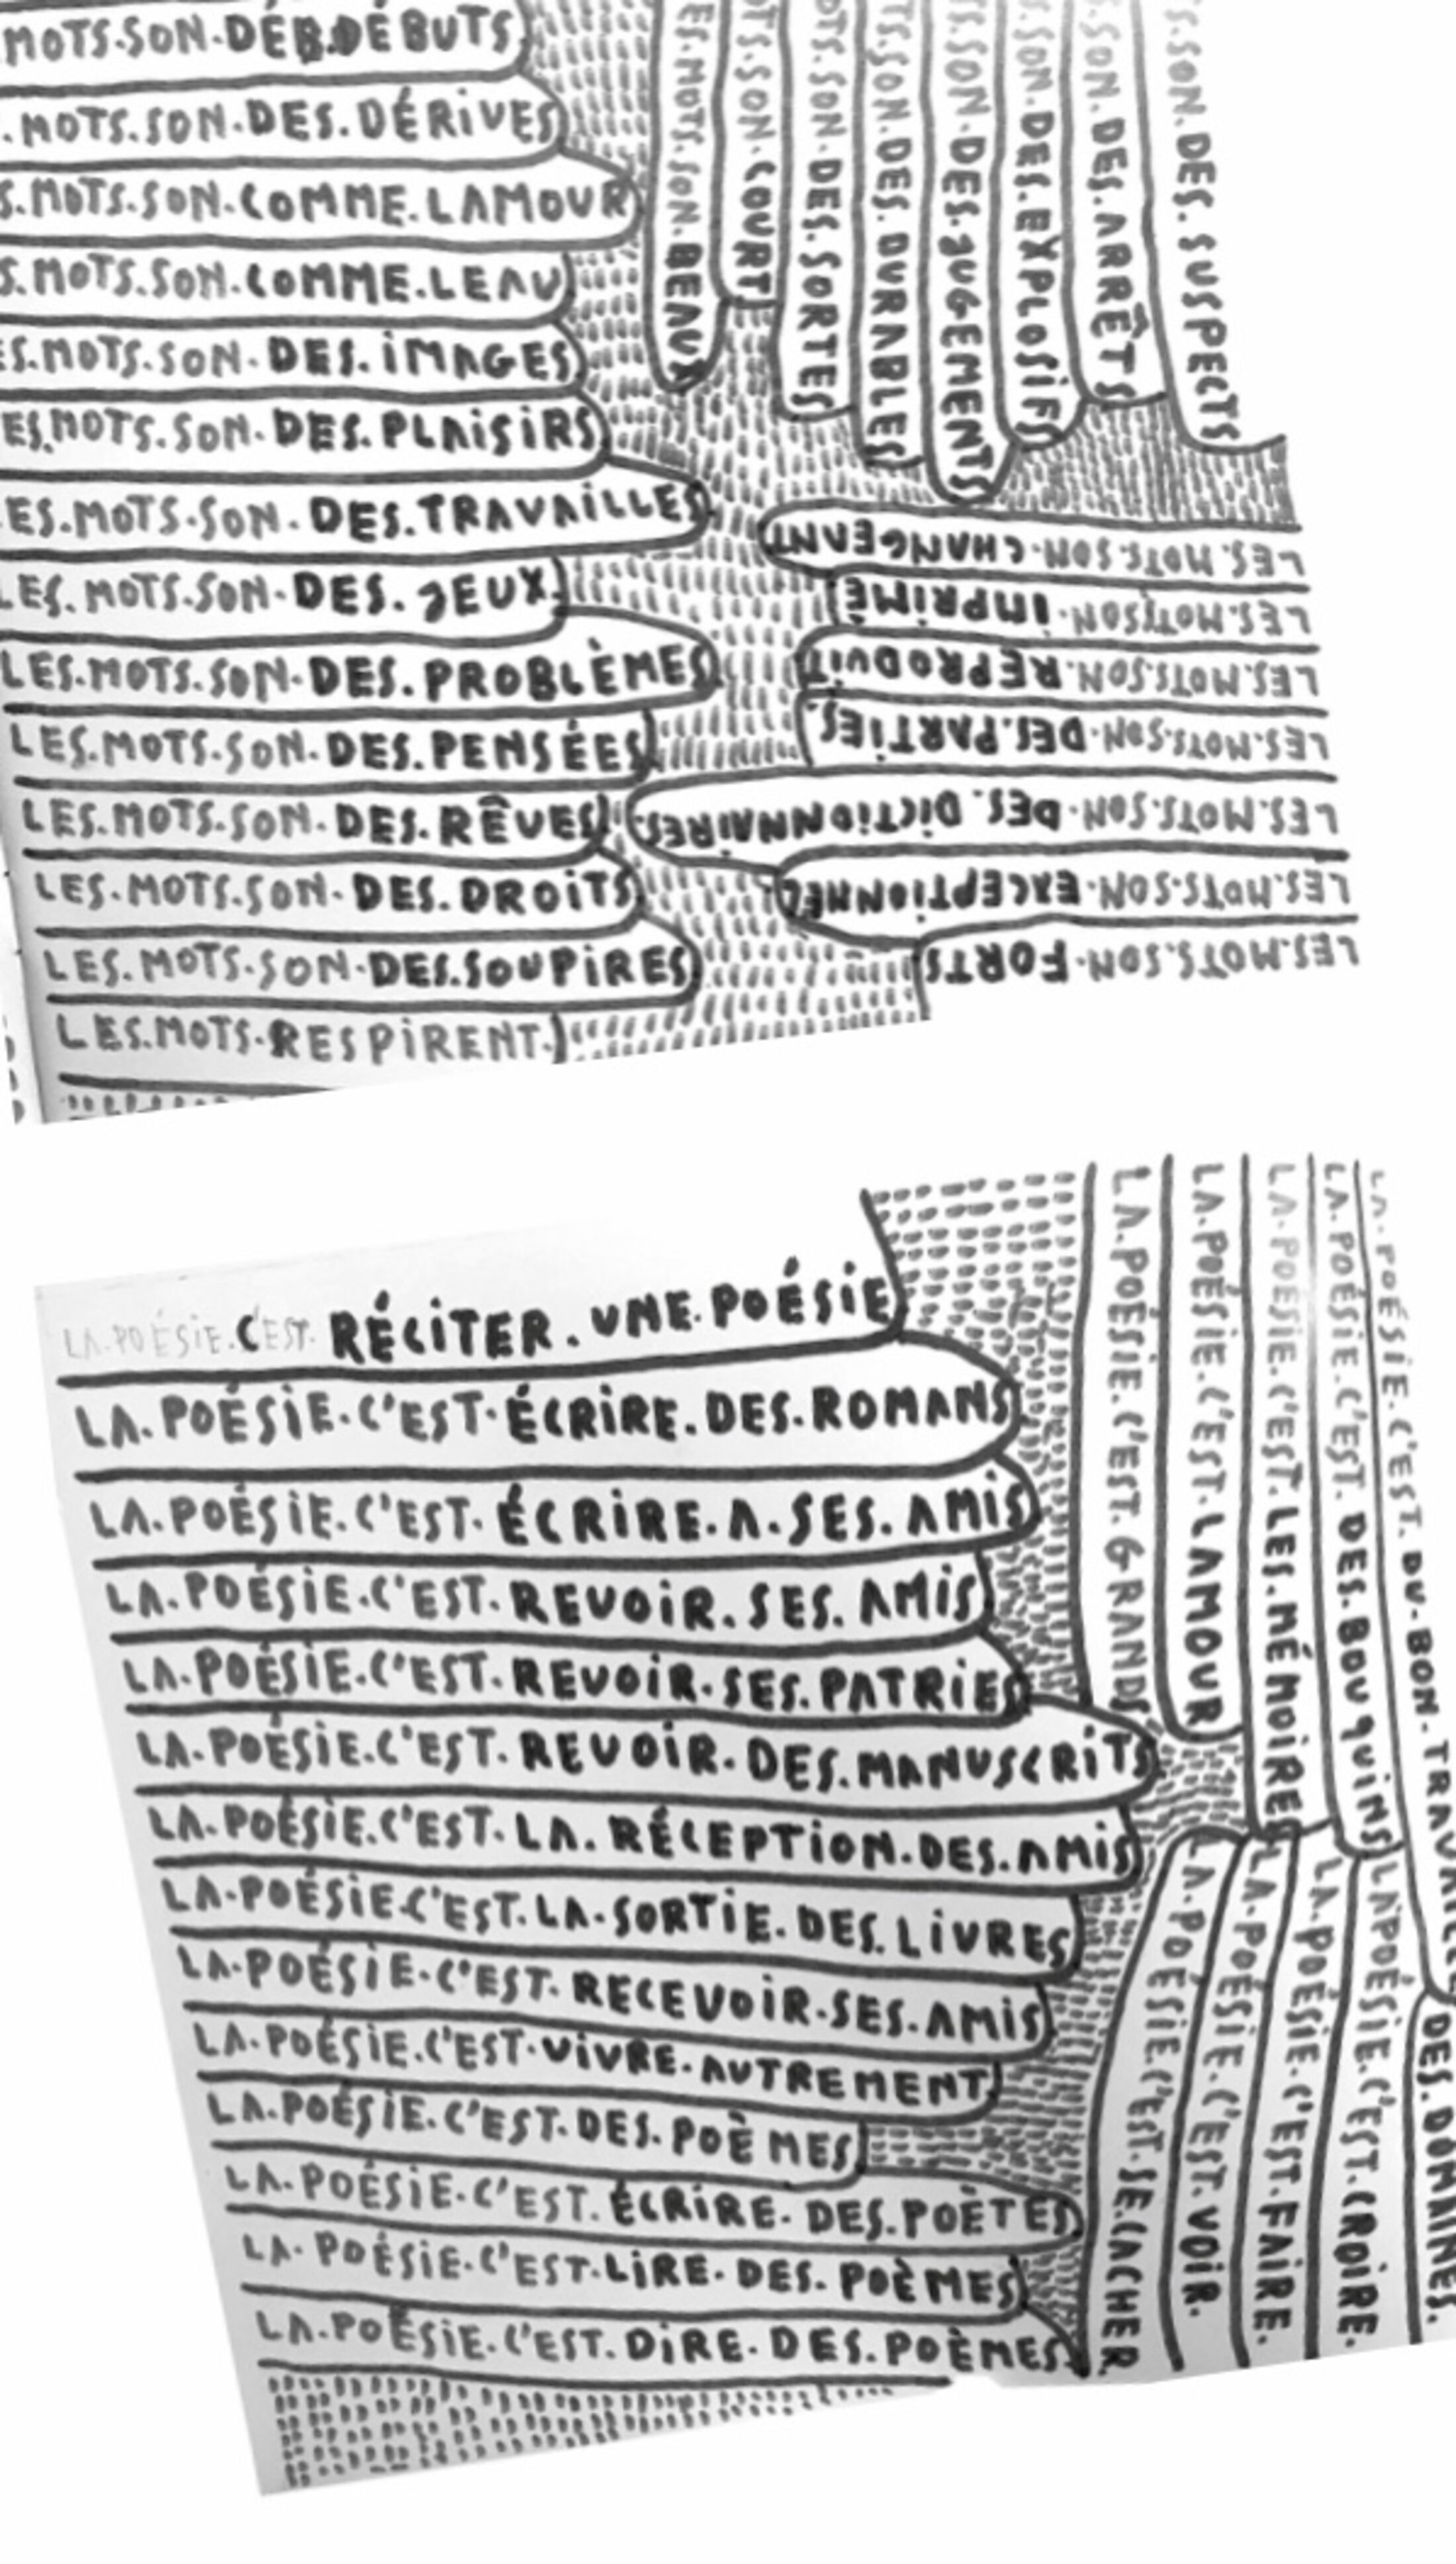 MOTS.SON.DÉB.DÉBUTS
.MOTS.SON.DES.DÉRiVES
S.MOTS.SON.COMME.LAMOUR
S.MOTS.SON.COMME.LEAU
ES.MOTS.SON.DES.iMAGES
ES.MOTS.SON.DES.PLAiSiRS
LES.MOTS.SON.DES.TRAVAiLLES
LES.MOTS.SON.DES.JEUX
LES.MOTS.SON.DES.PROBLÈMES
LES.MOTS.SON.DES.PENSÉES
LES.MOTS.SON.DES.RÊVES
LES.MOTS.SON.DES.DROiTS
LES.MOTS.SON.DES.SOUPiRES
LES.MOTS.RESPiRENT.
ES.MOTS.SON.BEAUX
OTS.SON.COURT
OTS.SON.DES.SORTES
TS.SON.DES.DURABLES
S.SON.DES.JUGEMENTS
S.SON.DES.EXPLOSiFS
.SON.DES.ARRÊTS
S.SON.DES.SUSPECTS
LES.MOTS.SON.CHANGEANT
LES.MOTS.SON.iMPRiMÉ
LES.MOTS.SON.REPRODUiT
LES.MOTS.SON.DES.PARTiES.
LES.MOTS.SON.DES.DiCTiONNAiRES
LES.MOTS.SON.EXCEPTiONNEL
LES.MOTS.SON.FORTS
LA.POÉSiE.C'EST.RÉCiTER.UNE.POÉSiE
LA.POÉSiE.C'EST.ÉCRiRE.DES.ROMANS
LA.POÉSiE.C'EST.ÉCRiRE.A.SES.AMiS
LA.POÉSiE.C'EST.REVOiR.SES.AMiS
LA.POÉSiE.C'EST.REVOiR.SES.PATRiES
LA.POÉSiE.C'EST.REVOiR.DES.MANUSCRiTS
LA.POÉSiE.C'EST.LA.RÉCEPTiON.DES.AMiS
LA.POÉSiE.C'EST.LA.SORTiE.DES.LiVRES
LA.POÉSiE.C'EST.RECEVOiR.SES.AMiS
LA.POÉSiE.C'EST.ViVRE.AUTREMENT
LA.POÉSiE.C'EST.DES.POÈMES
LA.POÉSiE.C'EST.ÉCRiRE.DES.POÈTES
LA.POÉSiE.C'EST.LiRE.DES.POÈMES
LA.POÉSiE.C'EST.DiRE.DES.POÈMES
LA.POÉSiE.C'EST.GRANDS
LA.POÉSiE.C'EST.LAMOUR
LA.POÉSiE.C'EST.LES.MÉMOiRES
LA.POÉSiE.C'EST.DES.BOUQUiNS
LA.POÉSiE.C'EST.DU.BON.TRAVAiL
LA.POÉSiE.C'EST.SE.CACHER.
LA.POÉSiE.C'EST.VOiR.
LA.POÉSiE.C'EST.FAiRE.
LA.POÉSiE.C'EST.CROiRE.
DES.DOMAiNES.